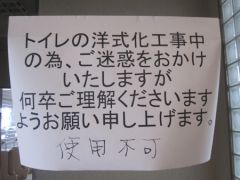 トイレの洋式化工事中
の為、ご迷惑をおかけ
いたしますが
何卒ご理解くださいます
ようお願い申し上げます。
使用不可